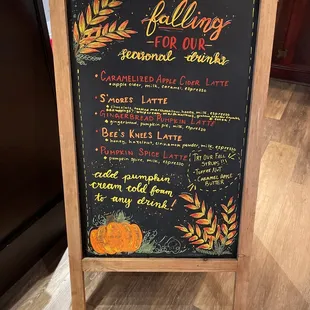 falling
-FOR OUR-
seasonal drinks
• CARAMELIZED APPLE CIDER LATTE
• apple cider, milk, caramel, espresso
• S'MORES LATTE
honey, milk, espresso
• GINGERBREAD PUMPKIN LATTE
• gingerbread, pumpkin pie, milk, espresso
• BEE'S KNEES LATTE
• honey, hazelnut, cinnamon powder, milk, espresso
• PUMPKIN SPICE LATTE
• pumpkin spice, milk, espresso
TRY OUR FALL
SYRUPS!!!
TOFFEE NUT
CARAMEL APPLE
BUTTER
add pumpkin
cream cold foam
to any drink!